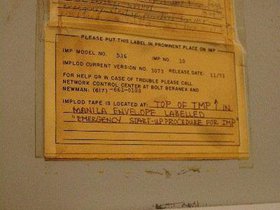 PLEASE PUT THIS LABEL IN PROMINENT PLACE ON IMP
IMP MODEL NO. 516 IMP NO. 10
IMPLOD CURRENT VERSION NO. 3073 RELEASE DATE: 11/71
FOR HELP OR IN CASE OF TROUBLE PLEASE CALL
NETWORK CONTROL CENTER AT BOLT BERANEK AND
NEWMAN: (617)-661-0100
IMPLOD TAPE IS LOCATED AT: TOP OF IMP ↑ IN
MANILA ENVELOPE LABELLED
"EMERGENCY START-UP PROCEDURE FOR IMP"